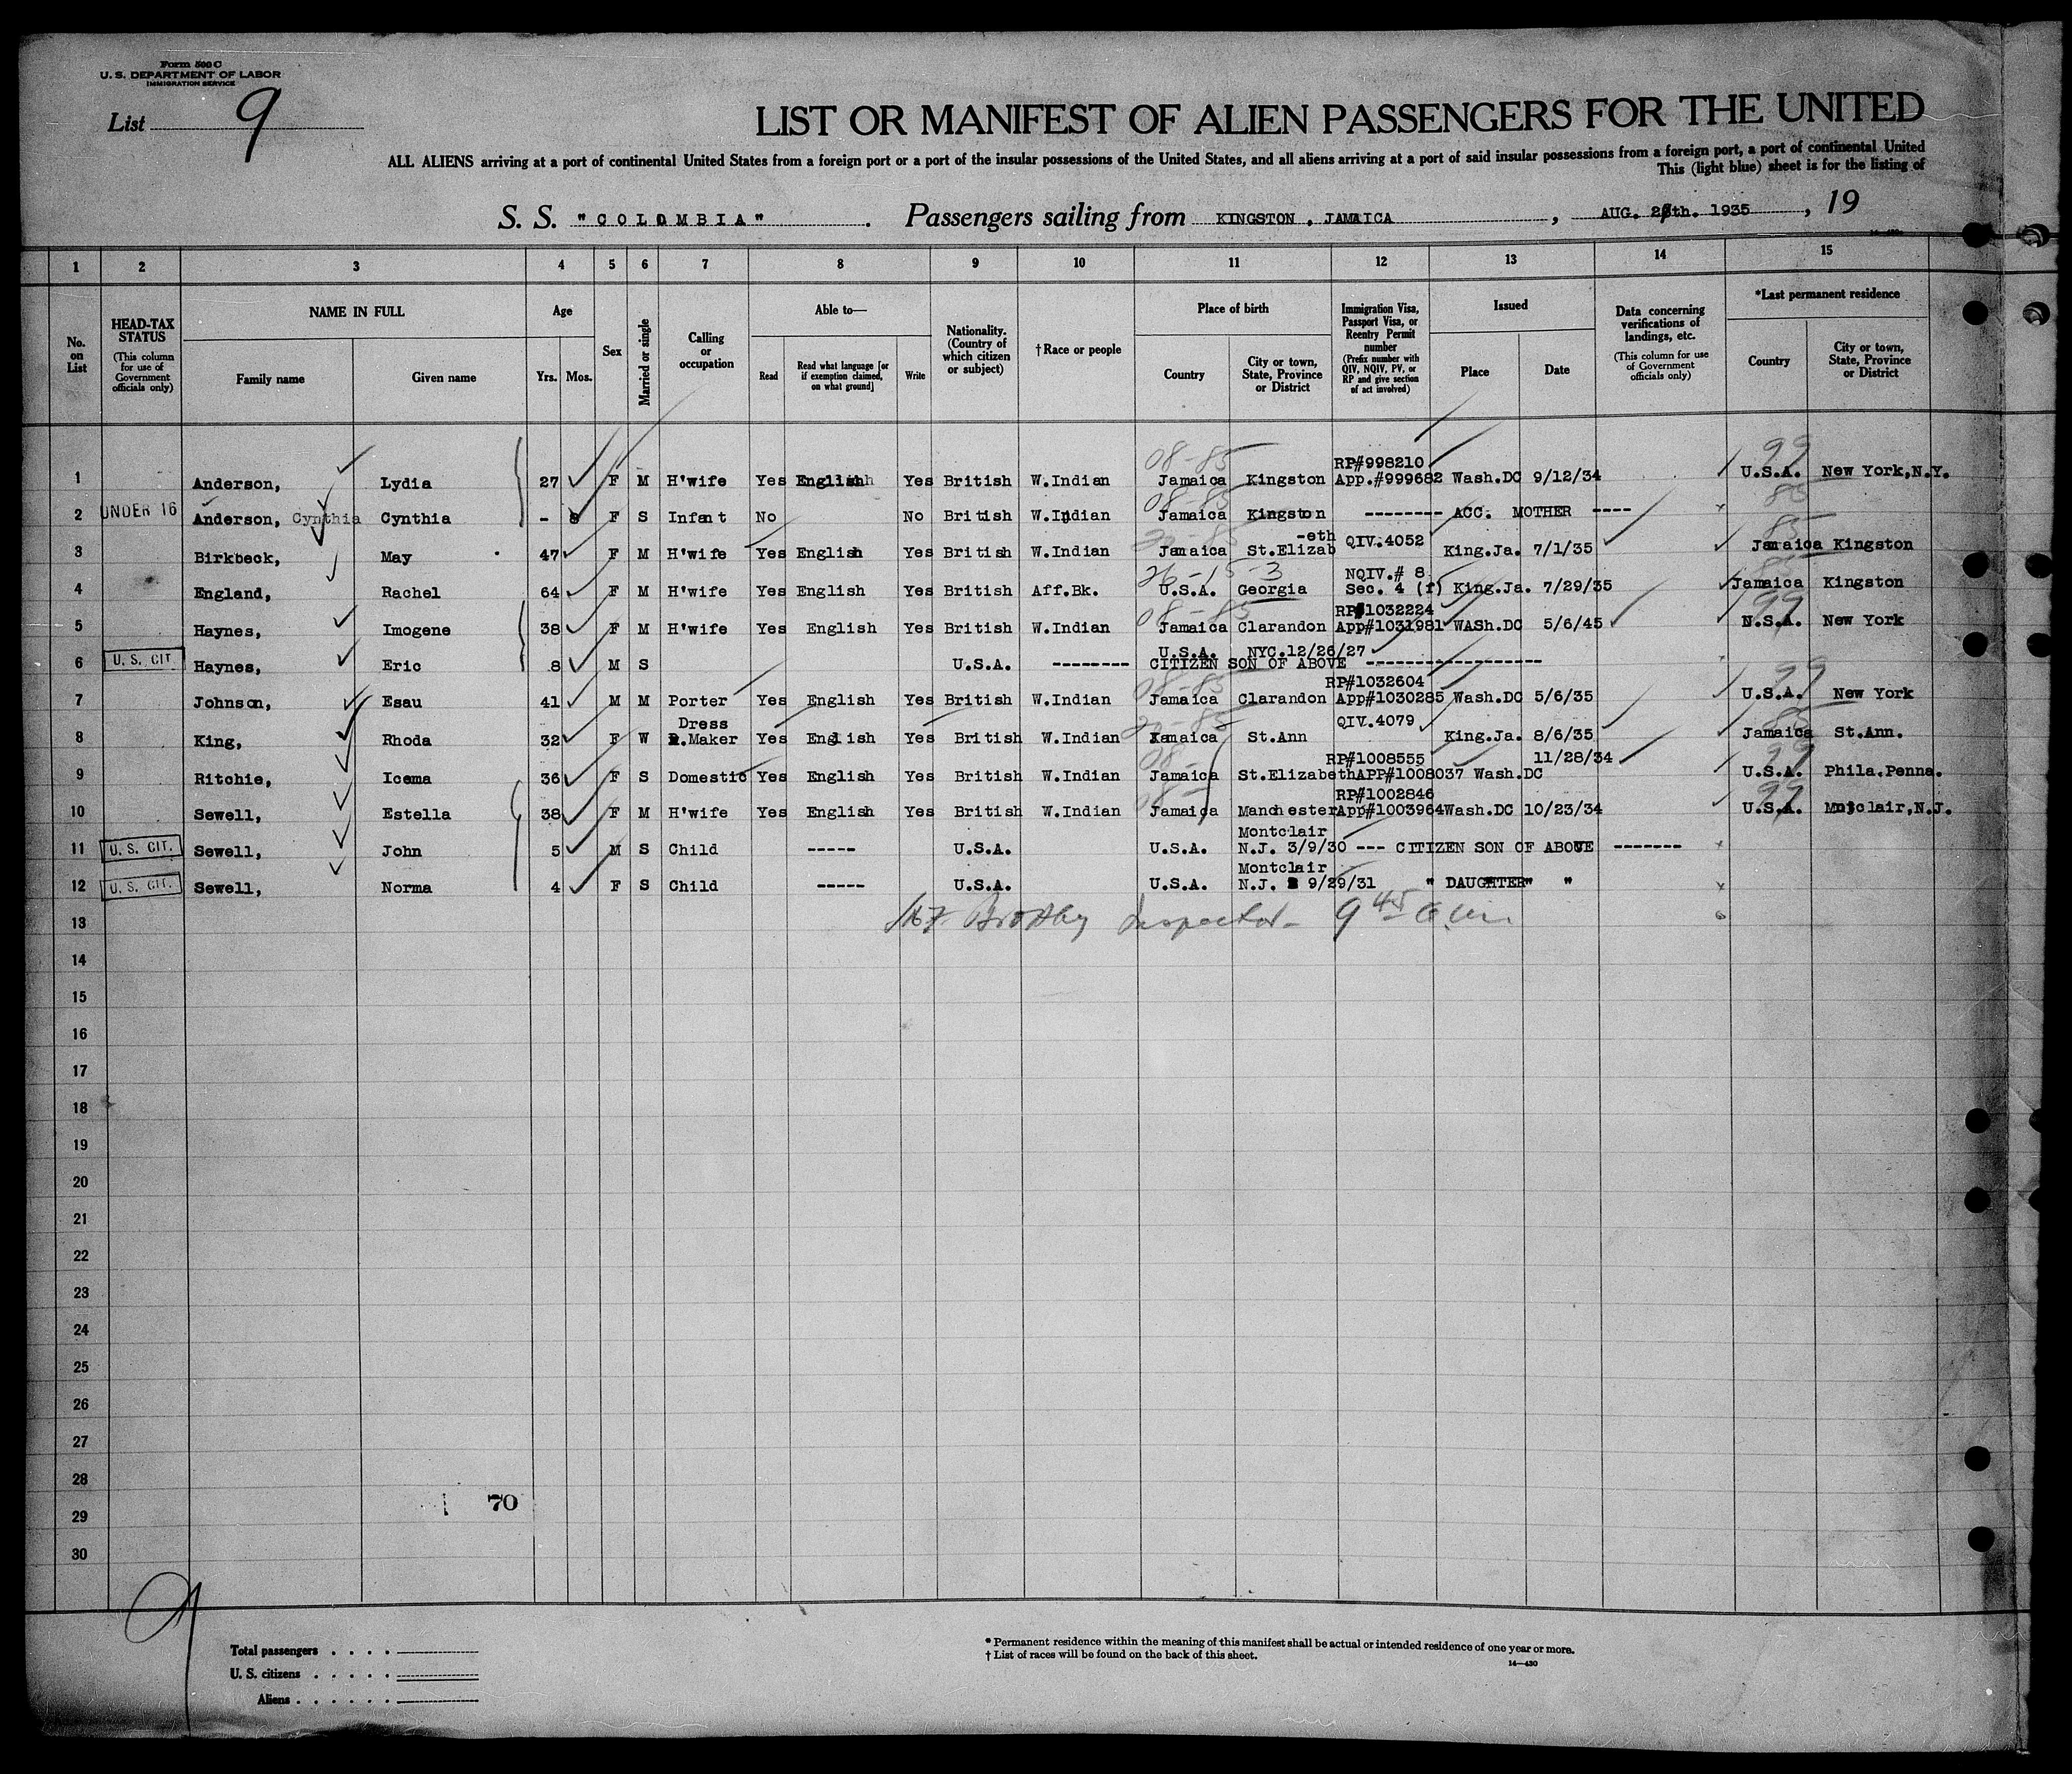 Form 500 C
U. S. DEPARTMENT OF LABOR
IMMIGRATION SERVICE
List 9
LIST OR MANIFEST OF ALIEN PASSENGERS FOR THE UNITED
ALL ALIENS arriving at a port of continental United States from a foreign port or a port of the insular possessions of the United States, and all aliens arriving at a port of said insular possessions from a foreign port, a port of continental United
This (light blue) sheet is for the listing of
S. S. "COLOMBIA". Passengers sailing from KINGSTON, JAMAICA, AUG. 2 th. 1935, 19
1 2 3 4 5 6 7 8 9 10 11 12 13 14 15
No. on List
HEAD-TAX STATUS (This column for use of Government officials only)
NAME IN FULL
Family name Given name
Age
Yrs. Mos.
Sex
Married or single
Calling or occupation
Able to—
Read Read what language [or if exemption claimed, on what ground] Write
Nationality. (Country of which citizen or subject)
†Race or people
Place of birth
Country City or town, State, Province or District
Immigration Visa, Passport Visa, or Reentry Permit number (Prefix number with QIV, NQIV, PV, or RP and give section of act involved)
Issued
Place Date
Data concerning verifications of landings, etc. (This column for use of Government officials only)
*Last permanent residence
Country City or town, State, Province or District
08-85 RP#998210 99
1 Anderson, Lydia 27 F M H'wife Yes English Yes British W.Indian Jamaica Kingston App.#999682 Wash.DC 9/12/34 U.S.A. New York,N.Y.
08-85 85
2 UNDER 16 Anderson, Cynthia Cynthia - 8 F S Infant No No British W.Indian Jamaica Kingston -------- ACC. MOTHER ----
-eth QIV.4052 85
3 Birkbeck, May 47 F M H'wife Yes English Yes British W.Indian Jamaica St.Elizab King.Ja. 7/1/35 Jamaica Kingston
26-15-3 NQIV.# 8
4 England, Rachel 64 F M H'wife Yes English Yes British Aff.Bk. U.S.A. Georgia Sec. 4 (f) King.Ja. 7/29/35 Jamaica Kingston
08-85 RP#1032224 99
5 Haynes, Imogene 38 F M H'wife Yes English Yes British W.Indian Jamaica Clarandon App#1031981 WASh.DC 5/6/45 N.S.A. New York
U.S.A. NYC.12/26/27
6 U.S. CIT. Haynes, Eric 8 M S U.S.A. -------- CITIZEN SON OF ABOVE ------------------
08-85 RP#1032604 99
7 Johnson, Esau 41 M M Porter Yes English Yes British W.Indian Jamaica Clarandon App#1030285 Wash.DC 5/6/35 U.S.A. New York
Dress QIV.4079 85
8 King, Rhoda 32 F W .Maker Yes English Yes British W.Indian Jamaica St.Ann King.Ja. 8/6/35 Jamaica St.Ann.
08- RP#1008555 11/28/34 99
9 Ritchie, Icema 36 F S Domestic Yes English Yes British W.Indian Jamaica St.Elizabeth APP#1008037 Wash.DC U.S.A. Phila.Penna.
08- RP#1002846 99
10 Sewell, Estella 38 F M H'wife Yes English Yes British W.Indian Jamaica Manchester App#1003964 Wash.DC 10/23/34 U.S.A. Mntclair,N.J.
Montclair
11 U.S. CIT. Sewell, John 5 M S Child ----- U.S.A. U.S.A. N.J. 3/9/30 --- CITIZEN SON OF ABOVE -------
Montclair
12 U.S. CIT. Sewell, Norma 4 F S Child ----- U.S.A. U.S.A. N.J. 9/29/31 " DAUGHTER" "
13 Inspector - 9 45 a.m.
14
15
16
17
18
19
20
21
22
23
24
25
26
27
28
70
29
30
Total passengers
U. S. citizens
Aliens
* Permanent residence within the meaning of this manifest shall be actual or intended residence of one year or more.
† List of races will be found on the back of this sheet.
14—430